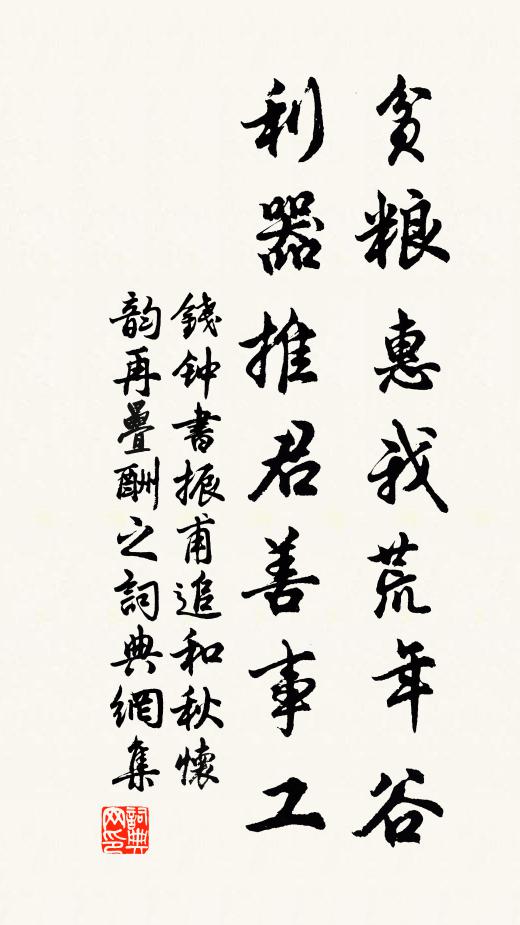 贫粮惠我荒年谷
利器推君善事工
錢钟書振甫追和秋懷
韵再疊酬之詞典網集
詞典网印